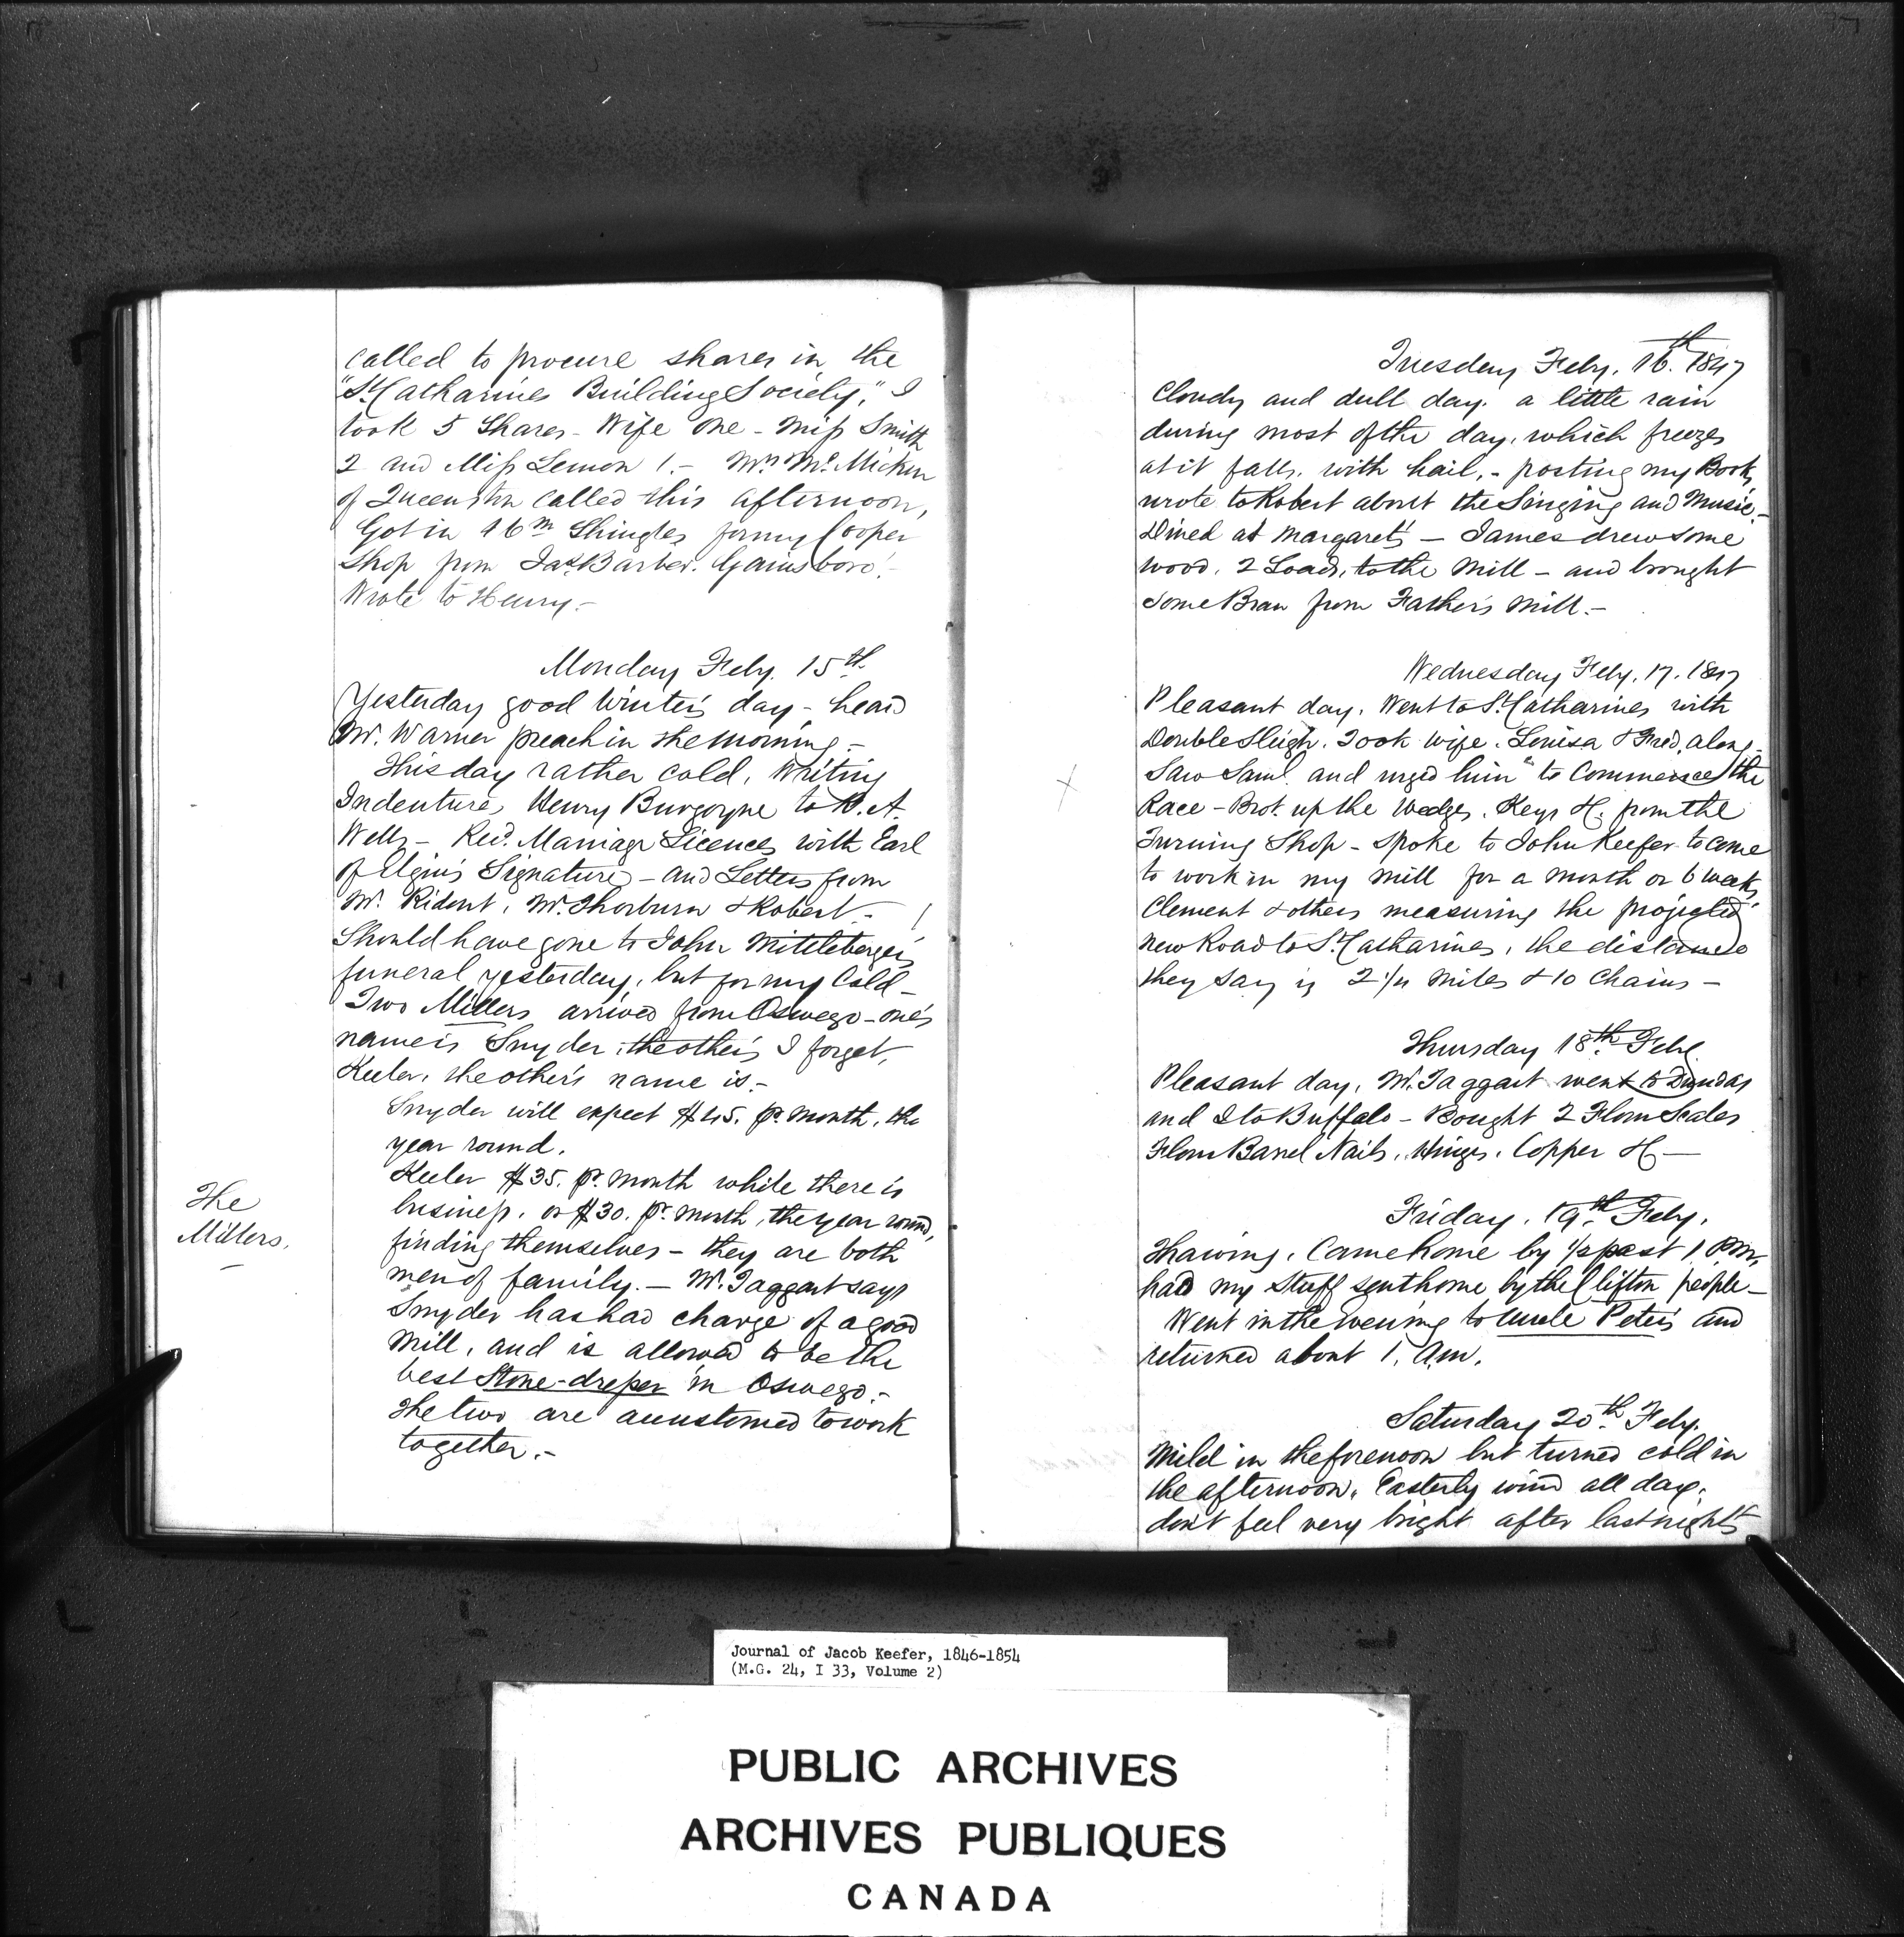 called to procure shares in the
"St. Catharines Building Society," I
took 5 Shares - Wife one - Miss Smith
2 and Miss Lemon 1. - Mrs. McMicken
of Queenston called this afternoon,
Got in 16m Shingles for my Cooper
Shop from Jas. Barber. Gainsboro'. -
Wrote to Henry. -
Monday Feby. 15th
Yesterday good Winter's day - heard
Mr. Warner preach in the morning. -
This day rather cold, Writing
Indentures Henry Burgoyne to
Wells - Recd. Marriage Licences with Earl
of Elgin's Signature - and Letters from
Mr. Rident, Mr. Thorburn & Robert. -
Should have gone to John Mittleberger's
funeral yesterday, but for my Cold -
Two Millers arrived from Oswego - one's
name is Snyder, the other's I forget,
Keeler, the other's name is. -
Snyder will expect $45. pr. month, the
year round.
The
Millers.
Keeler $35. pr. month while there is
business, or $30. pr. month, the year round,
finding themselves - they are both
men of family. - Mr. Taggart says
Snyder has had charge of a good
Mill, and is allowed to be the
best Stone-dresser in Oswego. -
The two are accustomed to work
together. -
Tuesday Feby. 16th. 1847
Cloudy and dull day. a little rain
during most of the day, which freezes
as it falls, with hail, - posting my Books,
wrote to Robert about the Singing and Music -
Dined at Margaret's - James drew some
wood, 2 Loads, to the Mill - and brought
some Bran from Father's Mill. -
Wednesday Feby. 17. 1847
Pleasant day. Went to St. Catharines with
Double Sleigh. Took wife, Louisa & Fred, along -
Saw Saml. and urged him to Commence the
Race - Brot. up the Wedges, Keys &c. from the
Turning Shop - spoke to John Keefer to come
to work in my Mill for a month or 6 weeks,
Clement & others measuring the projected
new Road to St. Catharines, the distance
they say is 2 1/4 miles & 10 Chains -
Thursday 18th. Feby.
Pleasant day, Mr. Taggart went to Dundas
and I to Buffalo - Bought 2 Flour Scales
Flour Barrel Nails, Hinges, Copper &c -
Friday, 19th. Feby.
Thawing. Came home by 1/2 past 1 P.m.
had my Stuff sent home by the Clifton people -
Went in the evening to Uncle Peter's and
returned about 1. A.m.
Saturday 20th. Feby.
Mild in the forenoon but turned cold in
the afternoon, Easterly wind all day.
don't feel very bright after last night's
Journal of Jacob Keefer, 1846-1854
(M.G. 24, I 33, Volume 2)
PUBLIC ARCHIVES
ARCHIVES PUBLIQUES
CANADA